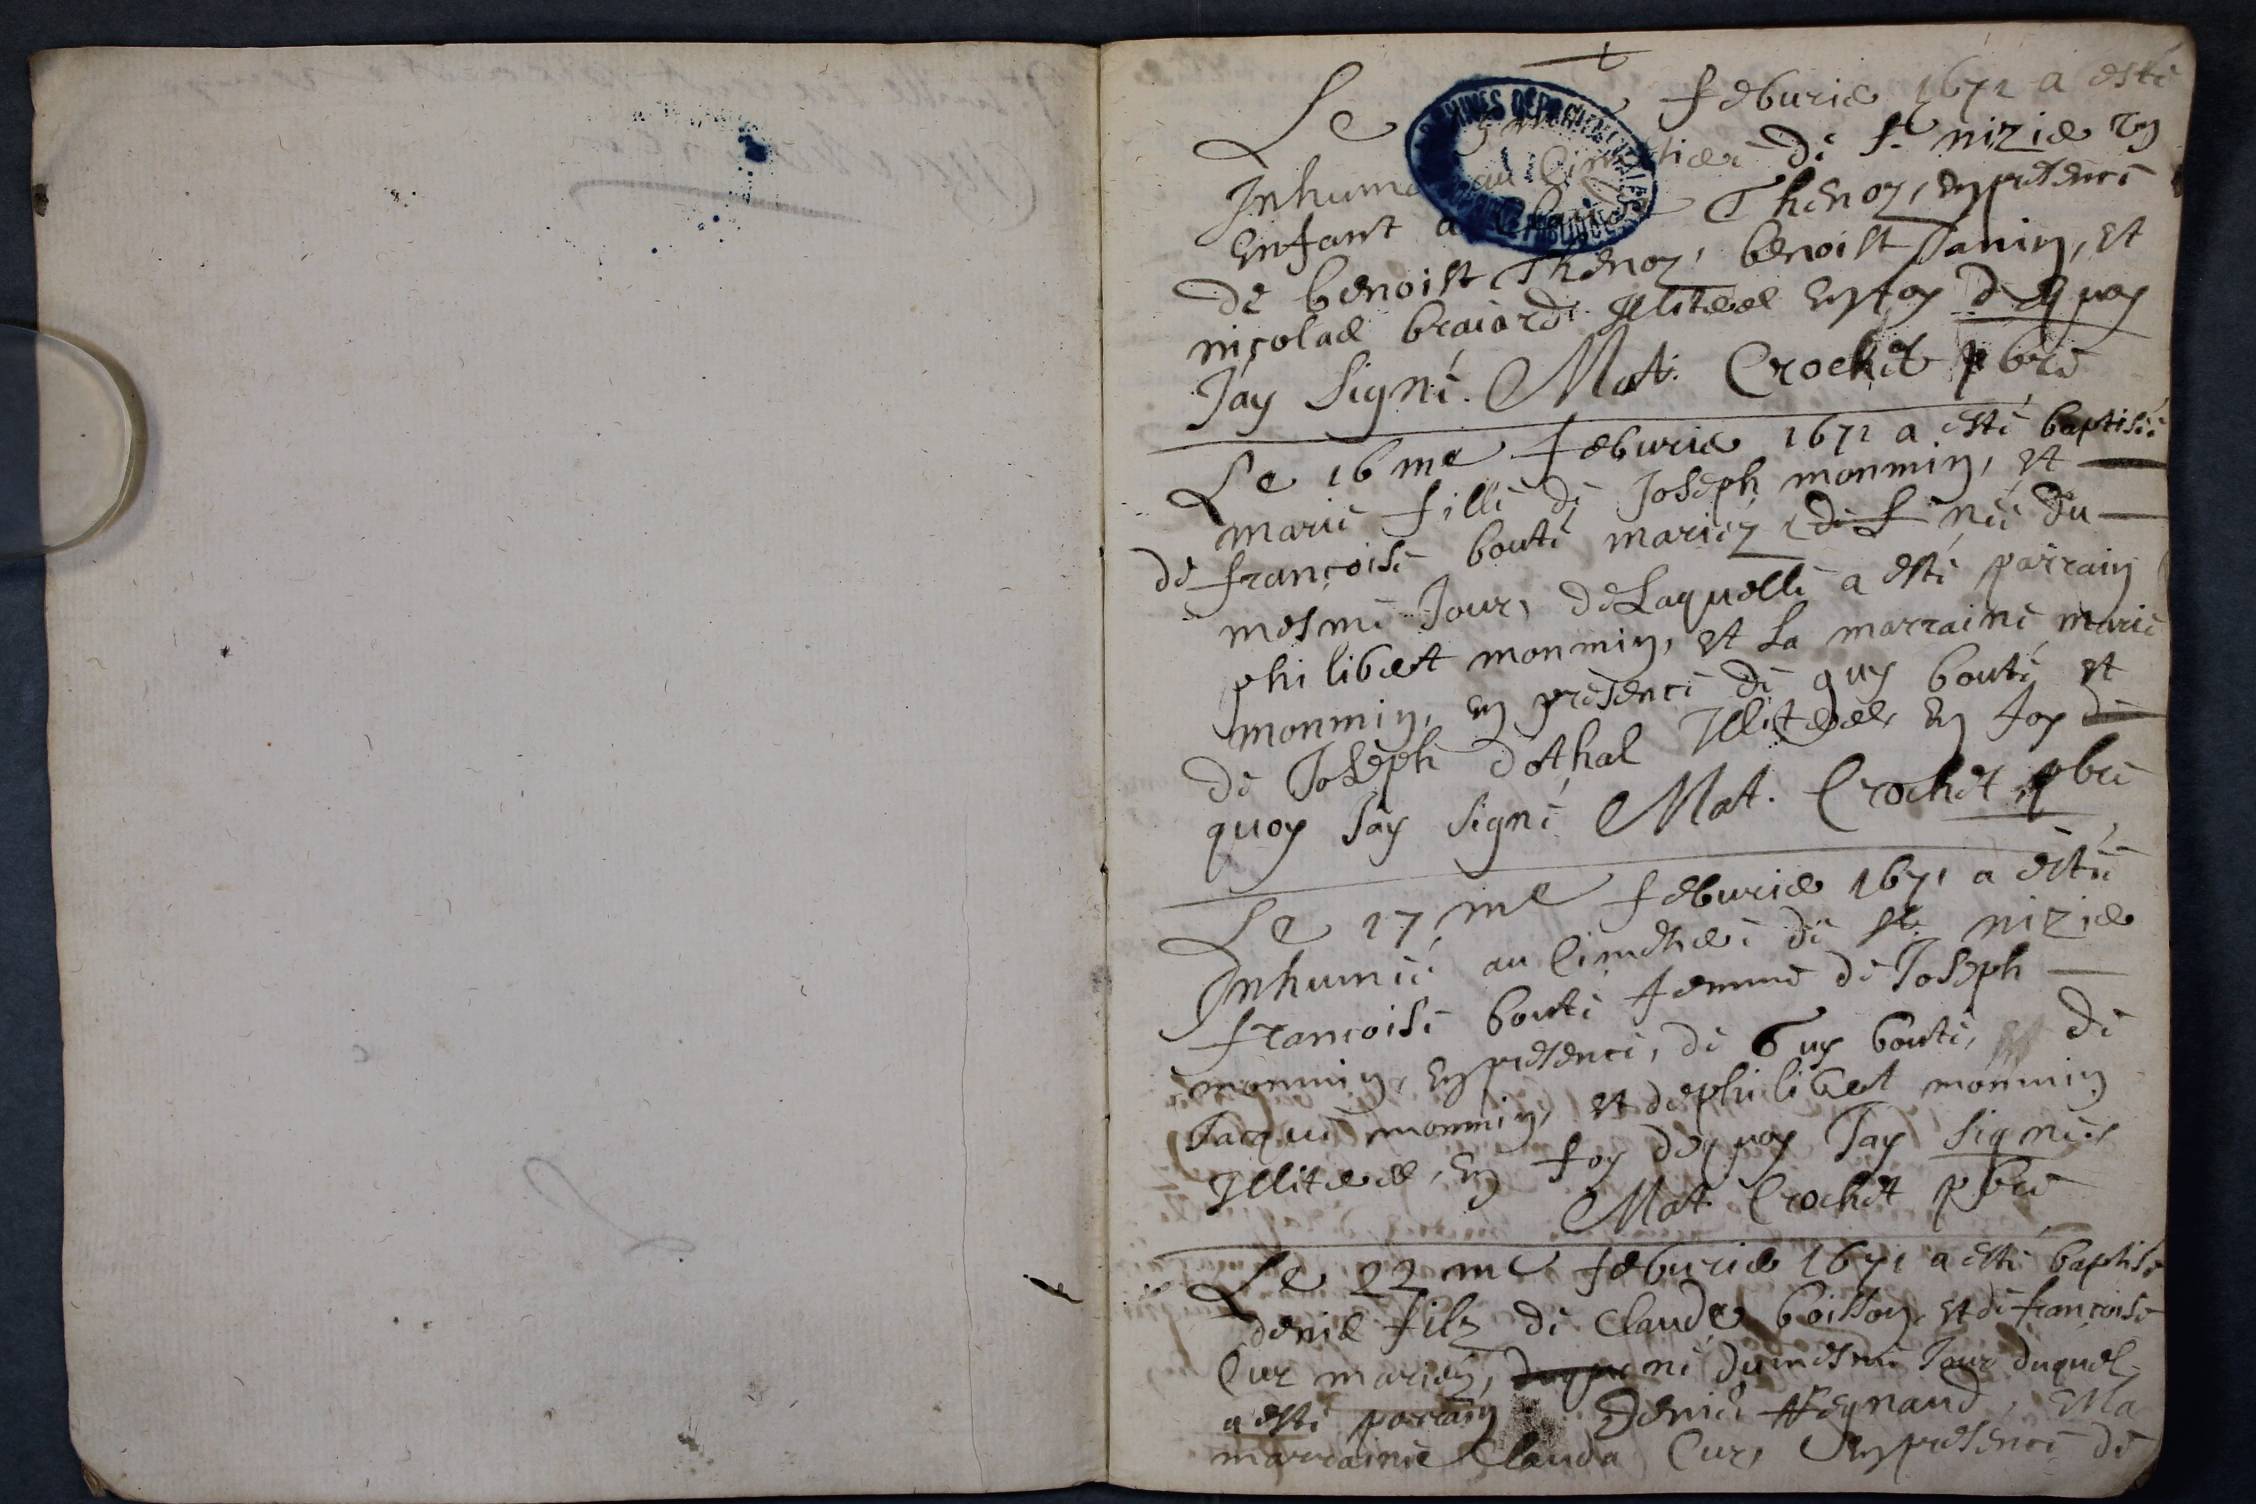 Le feburier 1671 a esté
Inhumé au Cimetiere de st nizier un
enfant a Thenoz, en presence
de benoist Thenoz, benoist Janin, et
nicolas braiard Illiteres en foy de quoy
Jay signé. Mat. Crochet pbre
Le 16me feburier 1671 a esté baptisée
marie fille de Joseph monmin, et
de françoise bouté mariéz née du
mesme Jour, de Laquelle a esté parrain
philibert monmin, et La marraine marie
monmin, en presence de guy bouté et
de Joseph dothal Illiteres en foy de
quoy Jay signé Mat. Crochet pbre
Le 17me feburier 1671 a esté
Inhumée au Cimetiere de st nizier
françoise bouté femme de Joseph
monmin, en presence, de Guy bouté, de
Jacque monmin, et de philibert monmin
Illiteres, en foy de quoy Jay signé.
Mat. Crochet pbre
Le 22me feburier 1671 a esté baptisé
denis filz de Claude boisson, et de françoise
Cur mariéz, né du mesme Jour duquel
a esté parrain Denis Reynaud, et la
marraine Clauda Cur, en presence de